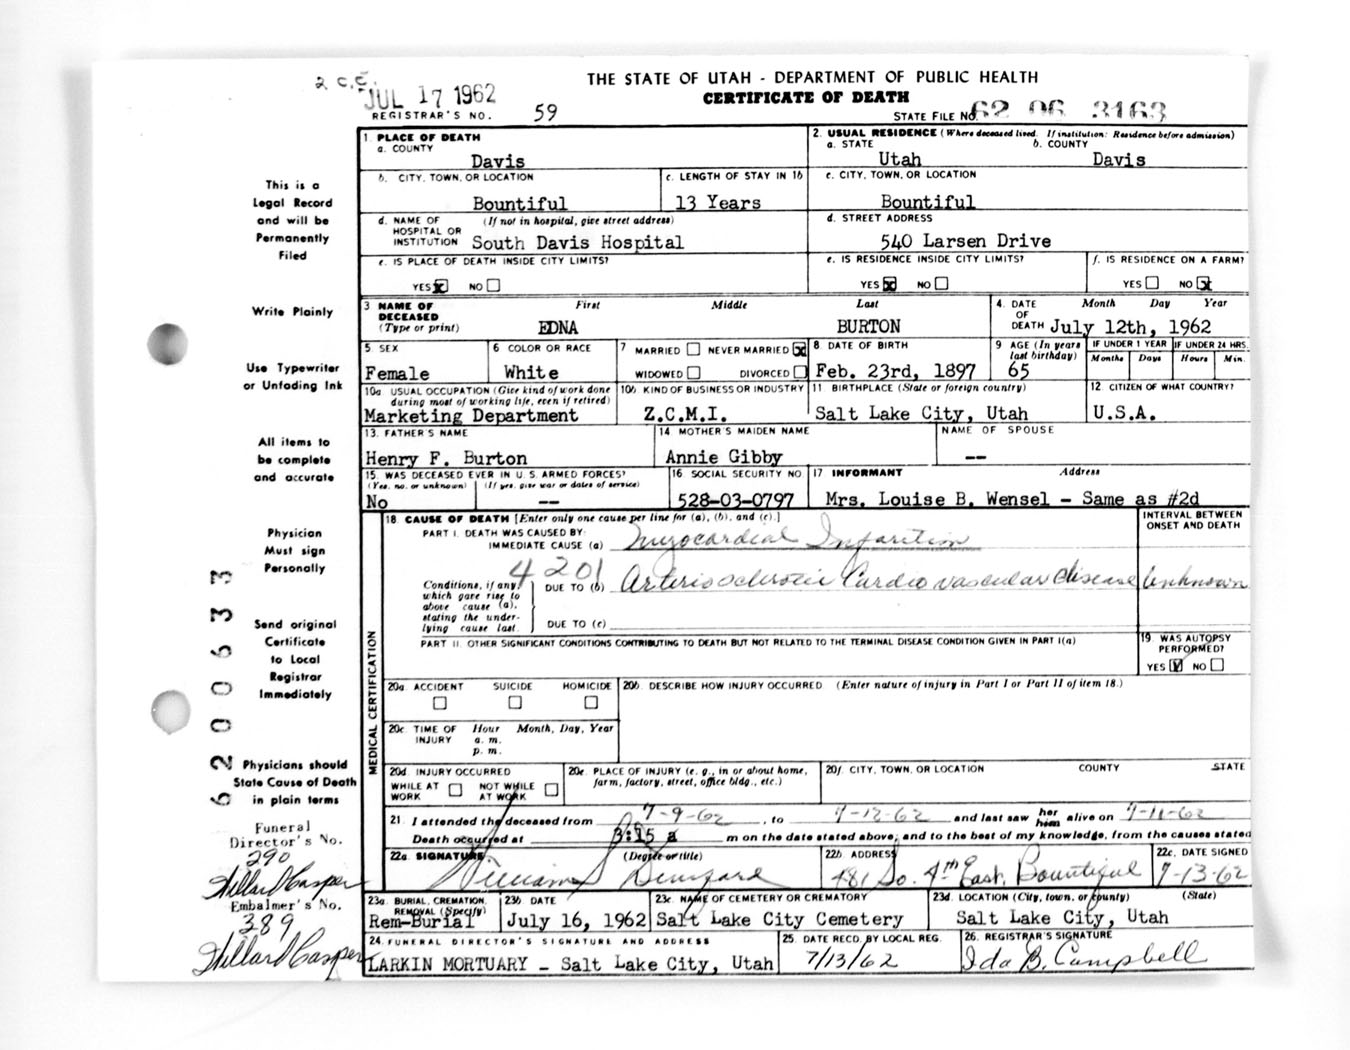 2 C.C.
JUL 17 1962
THE STATE OF UTAH - DEPARTMENT OF PUBLIC HEALTH
CERTIFICATE OF DEATH
REGISTRAR'S NO. 59
STATE FILE NO. 62 06 3163
This is a
Legal Record
and will be
Permanently
Filed
Write Plainly
Use Typewriter
or Unfading Ink
All items to
be complete
and accurate
Physician
Must sign
Personally
Send original
Certificate
to Local
Registrar
Immediately
Physicians should
State Cause of Death
in plain terms
Funeral
Director's No.
290
Hillard Casper
Embalmer's No.
389
Hillard Casper
62006333
1. PLACE OF DEATH
a. COUNTY
Davis
2. USUAL RESIDENCE (Where deceased lived. If institution: Residence before admission)
a. STATE b. COUNTY
Utah Davis
b. CITY, TOWN, OR LOCATION
Bountiful
c. LENGTH OF STAY IN 1b
13 Years
c. CITY, TOWN, OR LOCATION
Bountiful
d. NAME OF (If not in hospital, give street address)
HOSPITAL OR
INSTITUTION South Davis Hospital
d. STREET ADDRESS
540 Larsen Drive
e. IS PLACE OF DEATH INSIDE CITY LIMITS?
YES NO
e. IS RESIDENCE INSIDE CITY LIMITS?
YES NO
f. IS RESIDENCE ON A FARM?
YES NO
3 NAME OF First Middle Last
DECEASED
(Type or print) EDNA BURTON
4. DATE Month Day Year
OF
DEATH July 12th, 1962
5. SEX
Female
6 COLOR OR RACE
White
7 MARRIED NEVER MARRIED
WIDOWED DIVORCED
8 DATE OF BIRTH
Feb. 23rd, 1897
9 AGE (In years
last birthday)
65
IF UNDER 1 YEAR IF UNDER 24 HRS.
Months Days Hours Min.
10a USUAL OCCUPATION (Give kind of work done
during most of working life, even if retired)
Marketing Department
10b KIND OF BUSINESS OR INDUSTRY
Z.C.M.I.
11 BIRTHPLACE (State or foreign country)
Salt Lake City, Utah
12. CITIZEN OF WHAT COUNTRY?
U.S.A.
13. FATHER'S NAME
Henry F. Burton
14 MOTHER'S MAIDEN NAME
Annie Gibby
NAME OF SPOUSE
--
15. WAS DECEASED EVER IN U.S. ARMED FORCES?
(Yes, no, or unknown) (If yes, give war or dates of service)
No --
16 SOCIAL SECURITY NO.
528-03-0797
17 INFORMANT Address
Mrs. Louise B. Wensel - Same as #2d
MEDICAL CERTIFICATION
18. CAUSE OF DEATH [Enter only one cause per line for (a), (b), and (c).]
INTERVAL BETWEEN
ONSET AND DEATH
PART I. DEATH WAS CAUSED BY:
IMMEDIATE CAUSE (a) Myocardial Infarction
4201
Conditions, if any
which gave rise to
above cause (a),
stating the under-
lying cause last.
DUE TO (b) Arteriosclerotic Cardiovascular disease Unknown
DUE TO (c)
PART II. OTHER SIGNIFICANT CONDITIONS CONTRIBUTING TO DEATH BUT NOT RELATED TO THE TERMINAL DISEASE CONDITION GIVEN IN PART I(a)
19. WAS AUTOPSY
PERFORMED?
YES NO
20a. ACCIDENT SUICIDE HOMICIDE
20b. DESCRIBE HOW INJURY OCCURRED (Enter nature of injury in Part I or Part II of item 18.)
20c. TIME OF Hour Month, Day, Year
INJURY a. m.
p. m.
20d. INJURY OCCURRED
WHILE AT NOT WHILE
WORK AT WORK
20e. PLACE OF INJURY (e. g., in or about home,
farm, factory, street, office bldg., etc.)
20f. CITY, TOWN, OR LOCATION COUNTY STATE
21. I attended the deceased from 7-9-62, to 7-12-62 and last saw her him alive on 7-11-62
Death occurred at 3:15 a m on the date stated above; and to the best of my knowledge, from the causes stated
22a. SIGNATURE (Degree or title)
William
22b. ADDRESS
481 So. 4th East, Bountiful
22c. DATE SIGNED
7-13-62
23a. BURIAL, CREMATION,
REMOVAL (Specify)
Rem-Burial
23b DATE
July 16, 1962
23c. NAME OF CEMETERY OR CREMATORY
Salt Lake City Cemetery
23d. LOCATION (City, town, or county) (State)
Salt Lake City, Utah
24. FUNERAL DIRECTOR'S SIGNATURE AND ADDRESS
LARKIN MORTUARY - Salt Lake City, Utah
25. DATE RECD. BY LOCAL REG.
7/13/62
26. REGISTRAR'S SIGNATURE
Ida B. Campbell